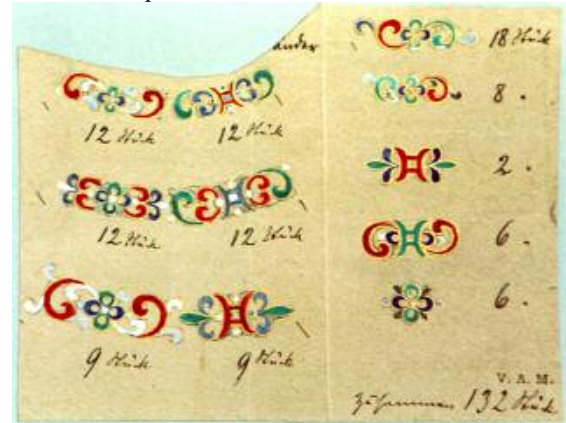 änder
12 Stück 12 Stück
12 Stück 12 Stück
9 Stück 9 Stück
18 Stück
8 .
2 .
6 .
6 .
V. A. M.
Zusammen 132 Stück